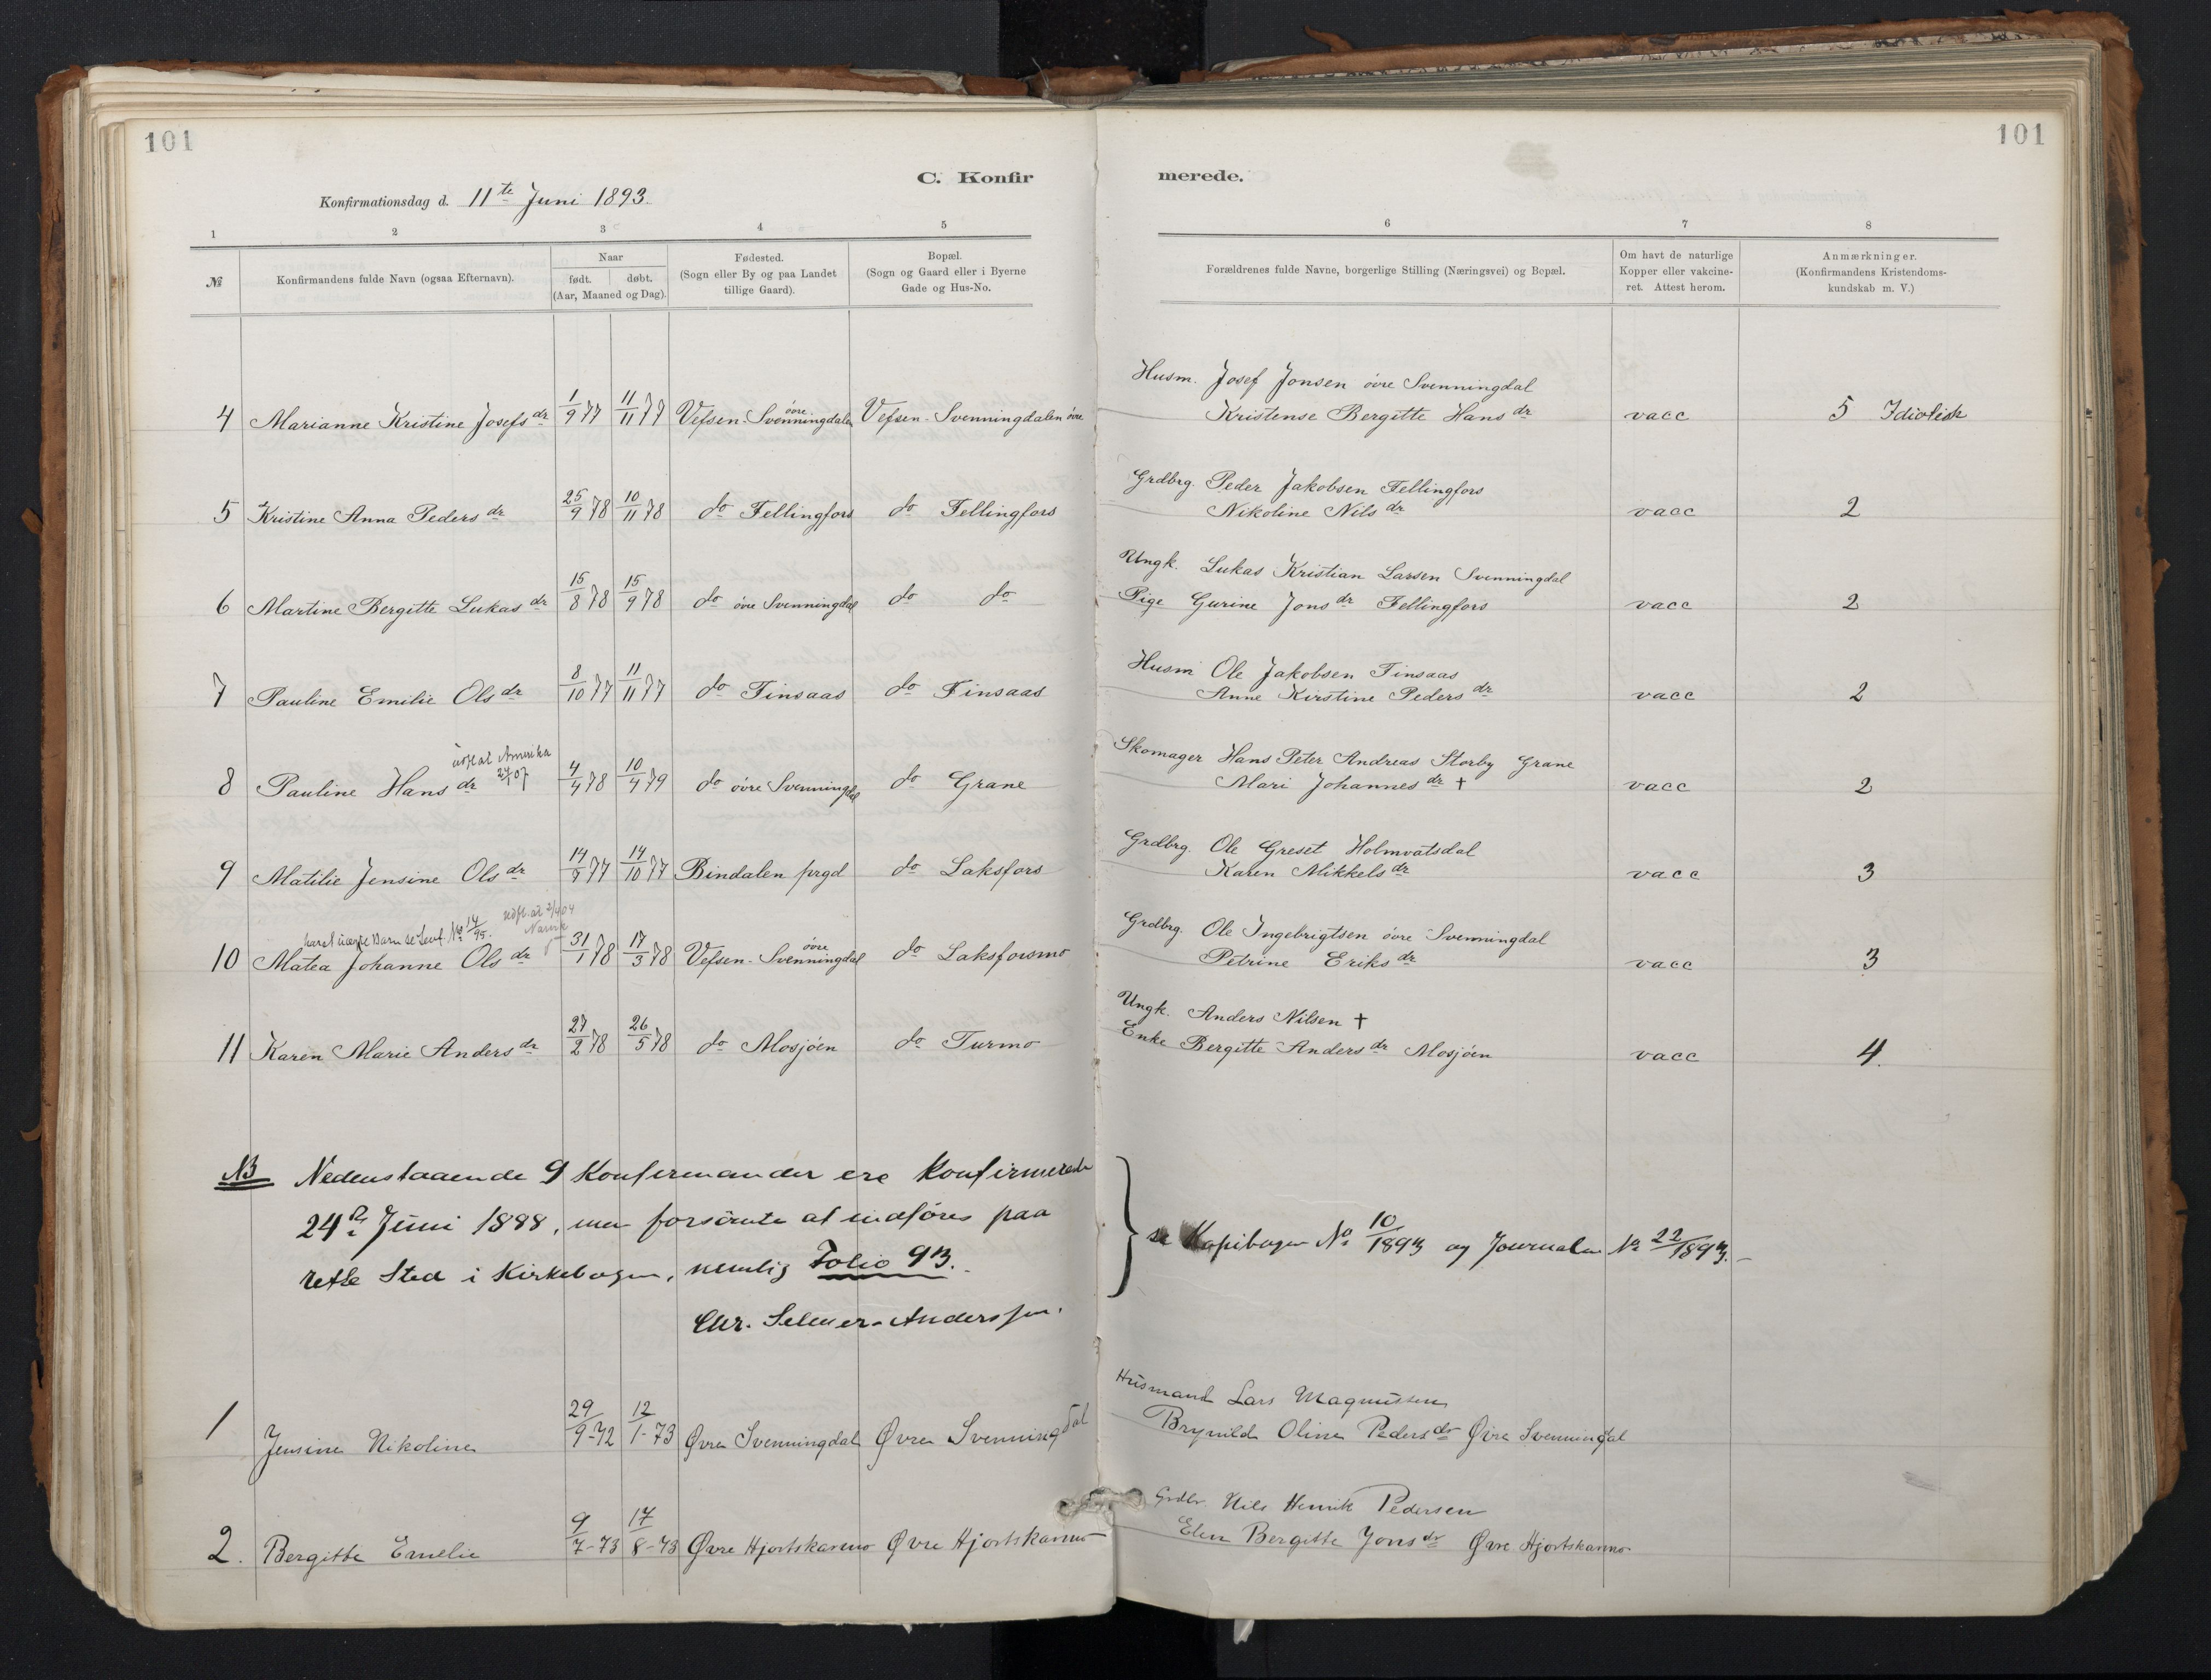 101
101
C. Konfirmerede.
Konfirmationsdag d. 11te Juni 1893.
1 2 3 4 5 6 7 8
№ Konfirmandens fulde Navn (ogsaa Efternavn). Naar født. døbt. (Aar, Maaned og Dag). Fødested. (Sogn eller By og paa Landet tillige Gaard). Bopæl. (Sogn og Gaard eller i Byerne Gade og Hus-No. Forældrenes fulde Navne, borgerlige Stilling (Næringsvei) og Bopæl. Om havt de naturlige Kopper eller vakcineret. Attest herom. Anmærkninger. (Konfirmandens Kristendomskundskab m. V.)
Husm. Josef Jonsen øvre Svenningdal
4 Marianne Kristine Josefsdr 1/9 77 11/11 77 Vefsen-Svenningdalen øvre Vefsen-Svenningdalen øvre Kristense Bergitte Hansdr vacc 5 Idiotisk
Grdbrg. Peder Jakobsen Fellingfors
5 Kristine Anna Pedersdr 25/9 78 10/11 78 do Fellingfors do Fellingfors Nikoline Nilsdr vacc 2
Ungk. Lukas Kristian Larsen Svenningdal
6 Martine Bergitte Lukasdr 15/8 78 15/9 78 do øvre Svenningdal do do Pige Gurine Jonsdr Fellingfors vacc 2
Husm Ole Jakobsen Finsaas
7 Pauline Emilie Olsdr 8/10 77 11/11 77 do Finsaas do Finsaas Anne Kirstine Pedersdr vacc 2
Skomager Hans Peter Andreas Storby Grane
udfl at Amerika
8 Pauline Hansdr 4/4 78 10/4 79 do øvre Svenningdal do Grane Mari Johannesdr † vacc 2
Grdbrg. Ole Greset Holmvatsdal
9 Matilie Jensine Olsdr 14/9 77 14/10 77 Bindalen prgd do Laksfors Karen Mikkelsdr vacc 3
Grdbrg. Ole Ingebrigtsen øvre Svenningdal
udfl. at 2/4 04 Narvik
havt uægte Barn se No 14/95.
10 Matea Johanne Olsdr 31/1 78 17/3 78 Vefsen-Svenningdal øvre do Laksforsmo Petrine Eriksdr vacc 3
Ungk. Anders Nilsen †
11 Karen Marie Andersdr 27/2 78 26/5 78 do Mosjøen do Turmo Enke Bergitte Andersdr Mosjøen vacc 4.
NB Nedenstaaende 9 Konfirmander ere Konfirmerede
24de Juni 1888, men forsømte at indføres paa
rette Sted i Kirkebogen, nemlig Folio 93.
se Kopibogen No 10/1893 og Journalen No 22/1893.
Chr. Selmer-Anderssen.
Husmand Lars Magnussen
1 Jensine Nikoline 29/9-72 12/1-73 Øvre Svenningdal Øvre Svenningdal Brynild Oline Pedersdr Øvre Svenningdal
Grdbr. Nils Henrik Pedersen
2. Bergitte Emelie 9/7-73 17/8-73 Øvre Hjortskarmo Øvre Hjortskarmo Elen Bergitte Jonsdr Øvre Hjortskarmo